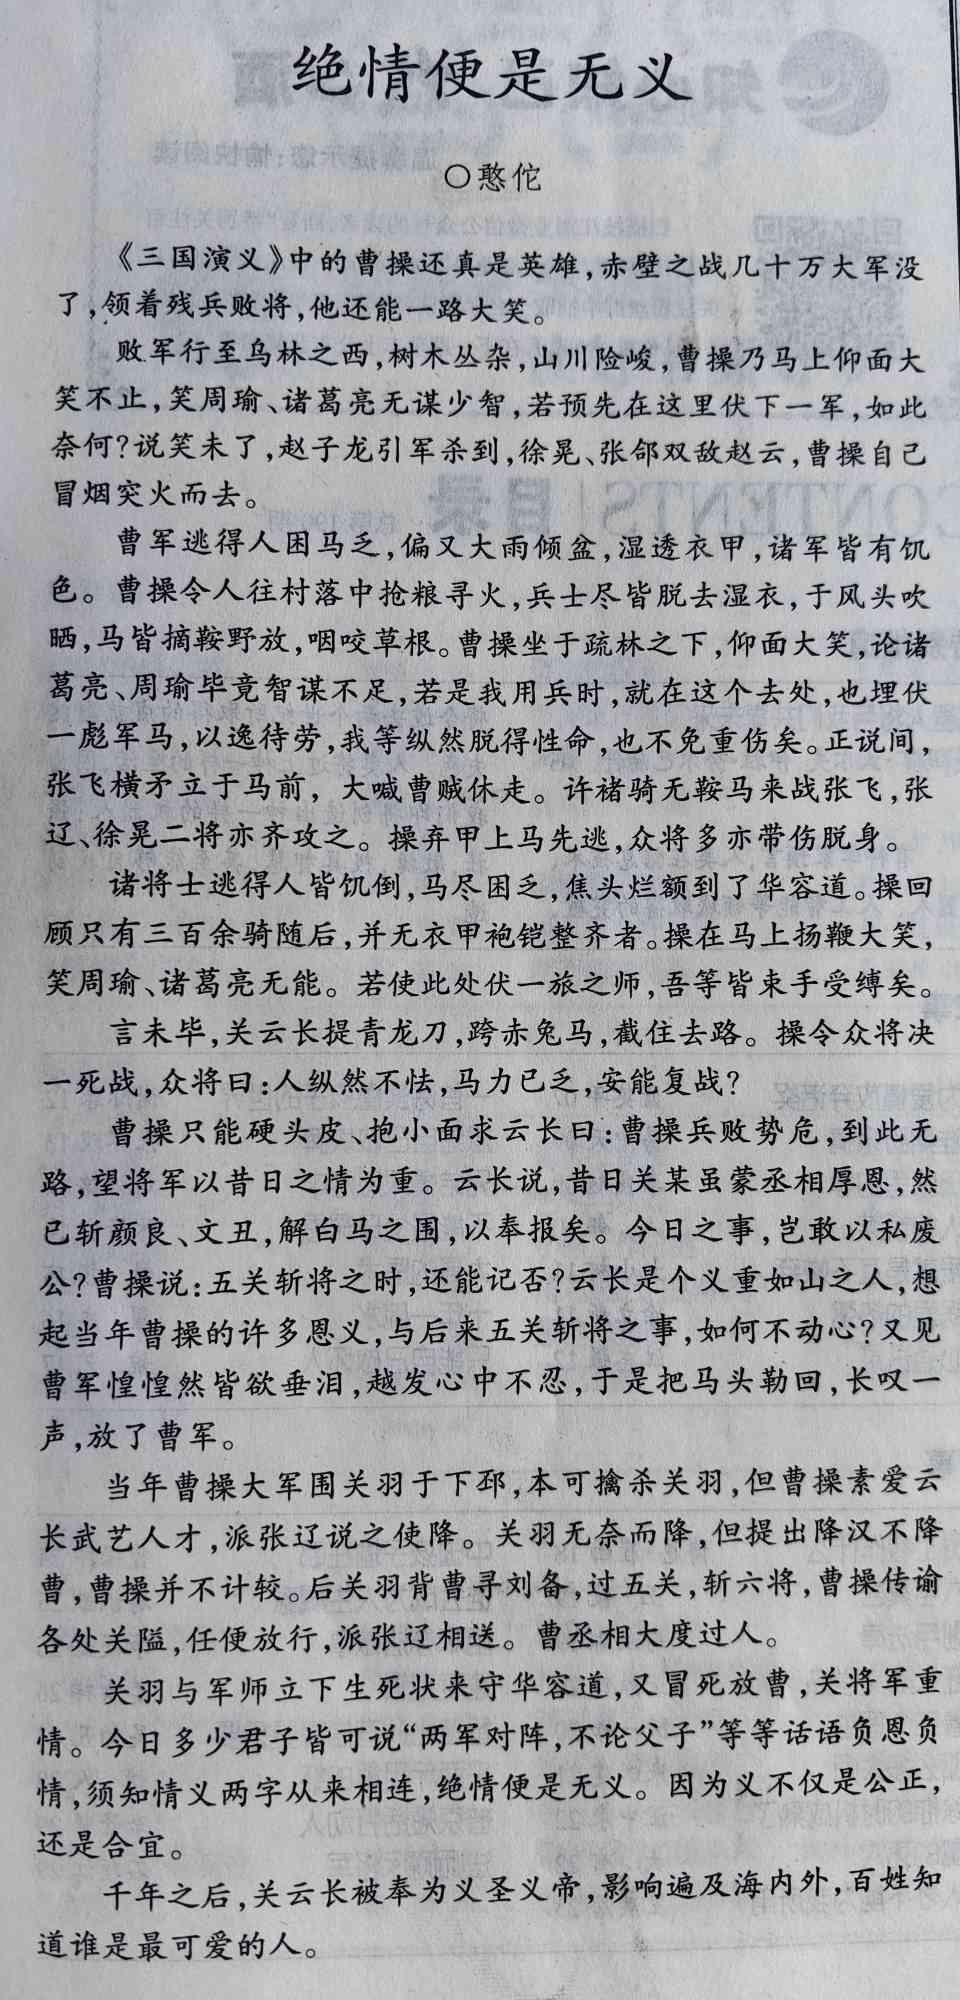 绝情便是无义
○憨佗
《三国演义》中的曹操还真是英雄,赤壁之战几十万大军没
了,领着残兵败将,他还能一路大笑。
败军行至乌林之西,树木丛杂,山川险峻,曹操乃马上仰面大
笑不止,笑周瑜、诸葛亮无谋少智,若预先在这里伏下一军,如此
奈何?说笑未了,赵子龙引军杀到,徐晃、张郃双敌赵云,曹操自己
冒烟突火而去。
曹军逃得人困马乏,偏又大雨倾盆,湿透衣甲,诸军皆有饥
色。曹操令人往村落中抢粮寻火,兵士尽皆脱去湿衣,于风头吹
晒,马皆摘鞍野放,咽咬草根。曹操坐于疏林之下,仰面大笑,论诸
葛亮、周瑜毕竟智谋不足,若是我用兵时,就在这个去处,也埋伏
一彪军马,以逸待劳,我等纵然脱得性命,也不免重伤矣。正说间,
张飞横矛立于马前,大喊曹贼休走。许褚骑无鞍马来战张飞,张
辽、徐晃二将亦齐攻之。操弃甲上马先逃,众将多亦带伤脱身。
诸将士逃得人皆饥倒,马尽困乏,焦头烂额到了华容道。操回
顾只有三百余骑随后,并无衣甲袍铠整齐者。操在马上扬鞭大笑,
笑周瑜、诸葛亮无能。若使此处伏一旅之师,吾等皆束手受缚矣。
言未毕,关云长提青龙刀,跨赤兔马,截住去路。操令众将决
一死战,众将曰:人纵然不怯,马力已乏,安能复战?
曹操只能硬头皮、抱小面求云长曰:曹操兵败势危,到此无
路,望将军以昔日之情为重。云长说,昔日关某虽蒙丞相厚恩,然
已斩颜良、文丑,解白马之围,以奉报矣。今日之事,岂敢以私废
公?曹操说:五关斩将之时,还能记否?云长是个义重如山之人,想
起当年曹操的许多恩义,与后来五关斩将之事,如何不动心?又见
曹军惶惶然皆欲垂泪,越发心中不忍,于是把马头勒回,长叹一
声,放了曹军。
当年曹操大军围关羽于下邳,本可擒杀关羽,但曹操素爱云
长武艺人才,派张辽说之使降。关羽无奈而降,但提出降汉不降
曹,曹操并不计较。后关羽背曹寻刘备,过五关,斩六将,曹操传谕
各处关隘,任便放行,派张辽相送。曹丞相大度过人。
关羽与军师立下生死状来守华容道,又冒死放曹,关将军重
情。今日多少君子皆可说“两军对阵,不论父子”等等话语负恩负
情,须知情义两字从来相连,绝情便是无义。因为义不仅是公正,
还是合宜。
千年之后,关云长被奉为义圣义帝,影响遍及海内外,百姓知
道谁是最可爱的人。